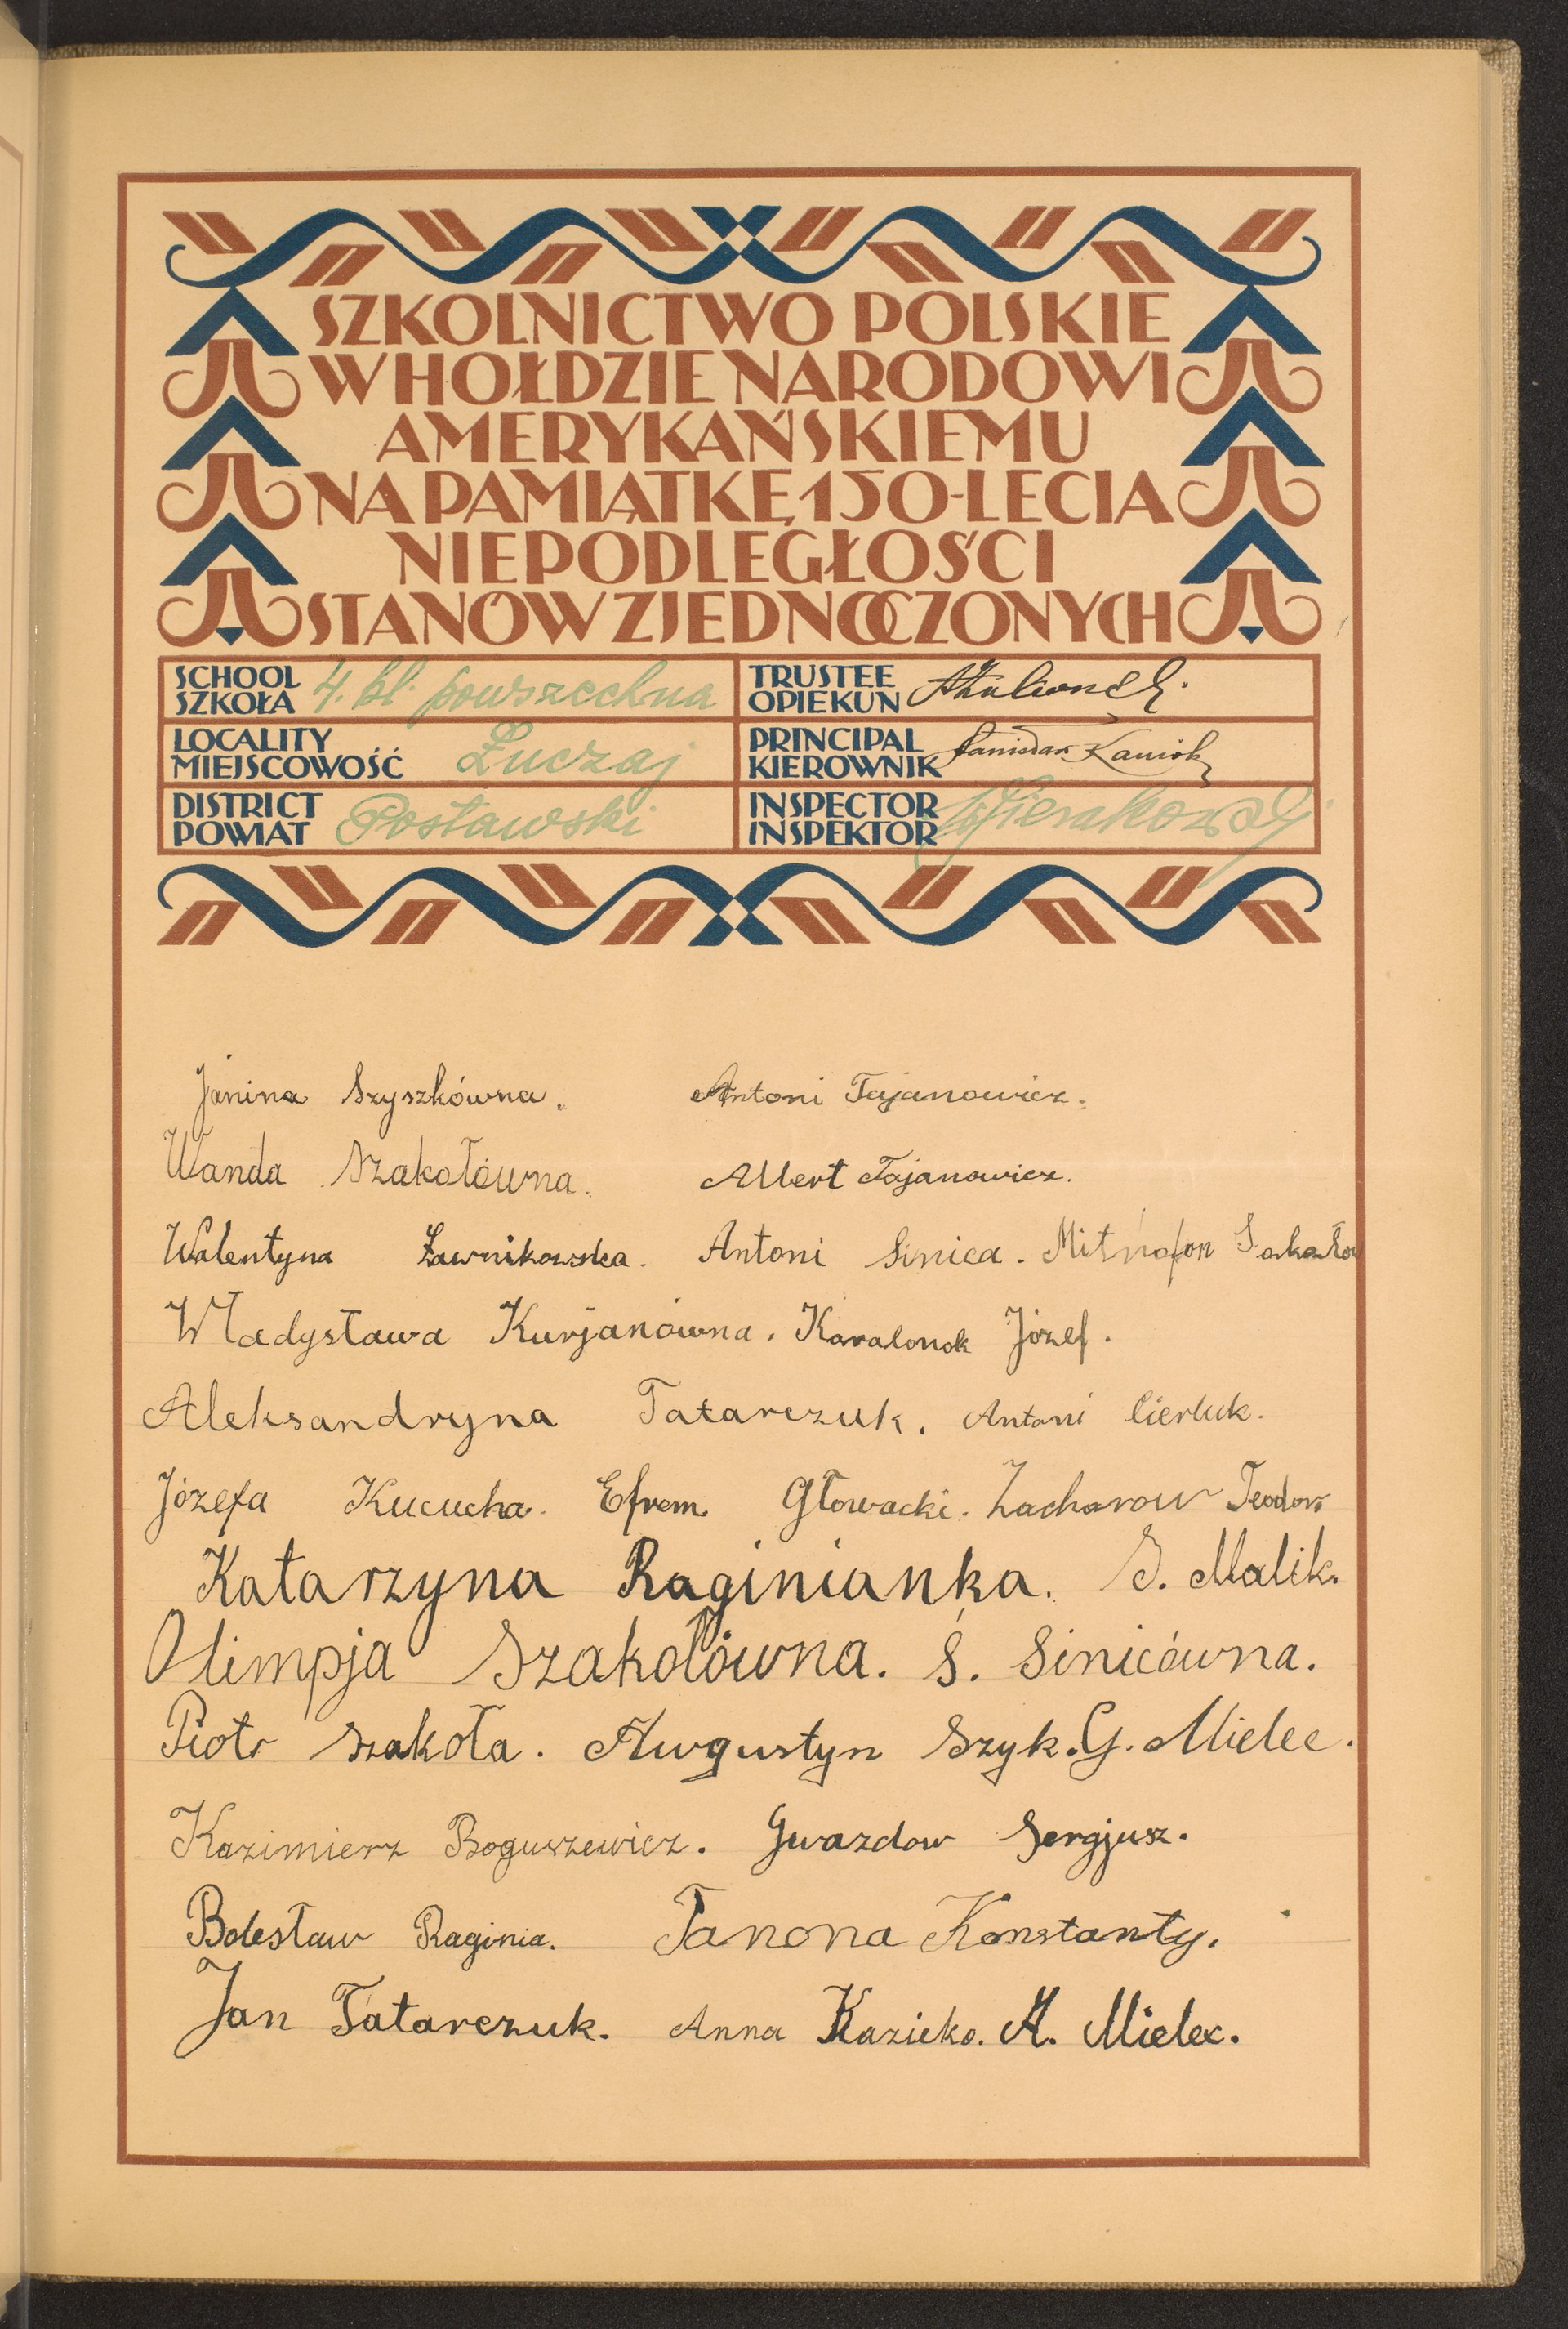 SZKOLNICTWO POLSKIE
W HOŁDZIE NARODOWI
AMERYKAŃSKIEMU
NA PAMIĄTKĘ 150-LECIA
NIEPODLEGŁOŚCI
STANÓW ZJEDNOCZONYCH
SCHOOL
SZKOŁA 4. kl. powszechna
TRUSTEE
OPIEKUN
LOCALITY
MIEJSCOWOŚĆ Łuczaj
PRINCIPAL
KIEROWNIK Stanisław Kaniok
DISTRICT
POWIAT Postawski
INSPECTOR
INSPEKTOR
Janina Szyszkówna. Antoni Tajanowicz.
Wanda Szakołówna. Albert Tajanowicz.
Walentyna Ławnikowska. Antoni Sinica. Mitrofon
Władysława Kurjanówna. Karalonok Józef.
Aleksandryna Tatarczuk. Antoni Cierluk.
Józefa Kucucha. Efrem Głowacki. Zacharow Teodor
Katarzyna Raginianka. S. Malik.
Olimpja Szakołówna. S. Sinicówna.
Piotr Szakoła. Augustyn Szyk. G. Mielec.
Kazimierz Boguszewicz. Gwazdow Sergjusz.
Bolesław Raginia. Tanona Konstanty.
Jan Tatarczuk. Anna Kazicko. A. Mielec.